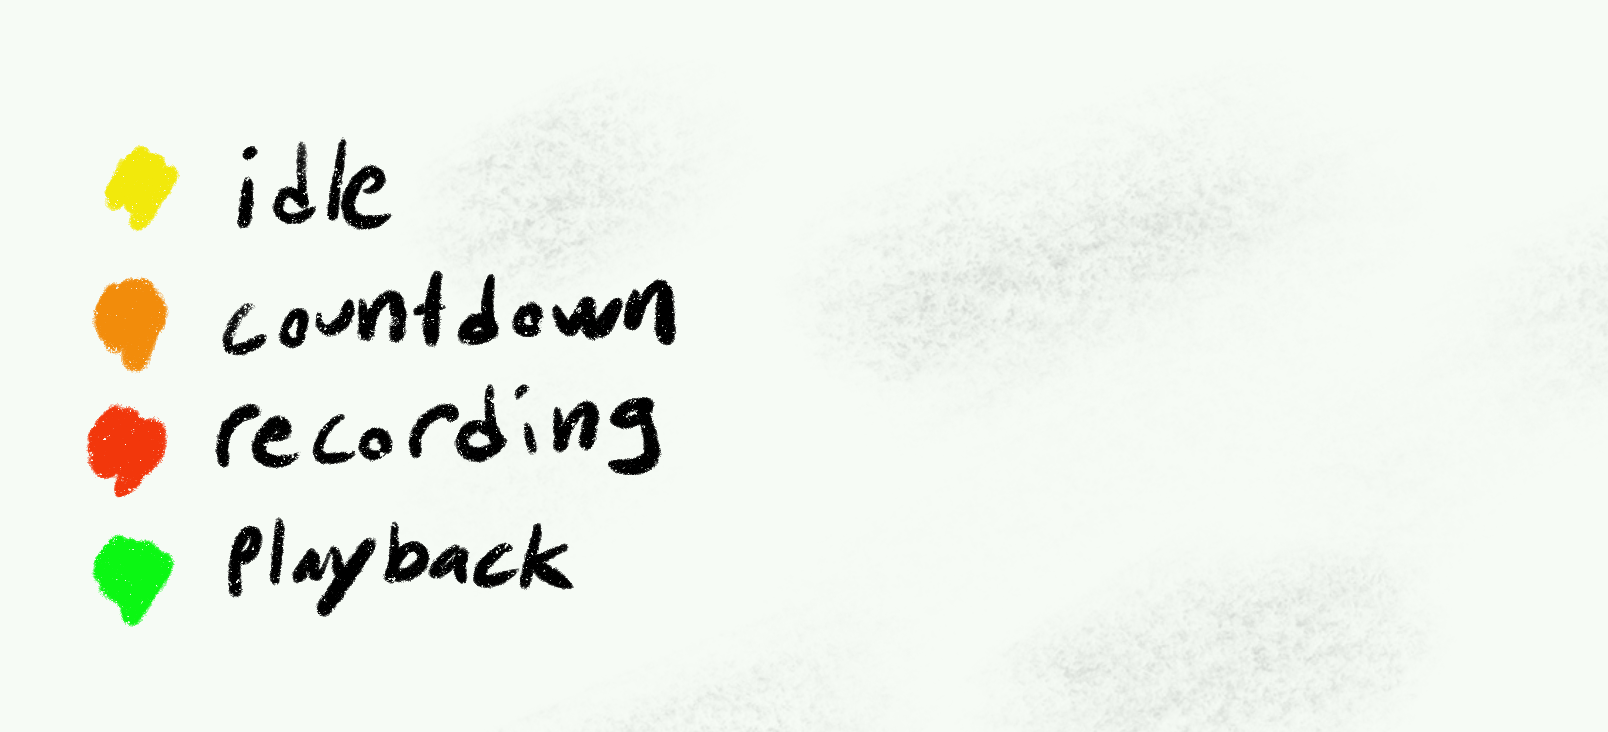 idle
countdown
recording
playback